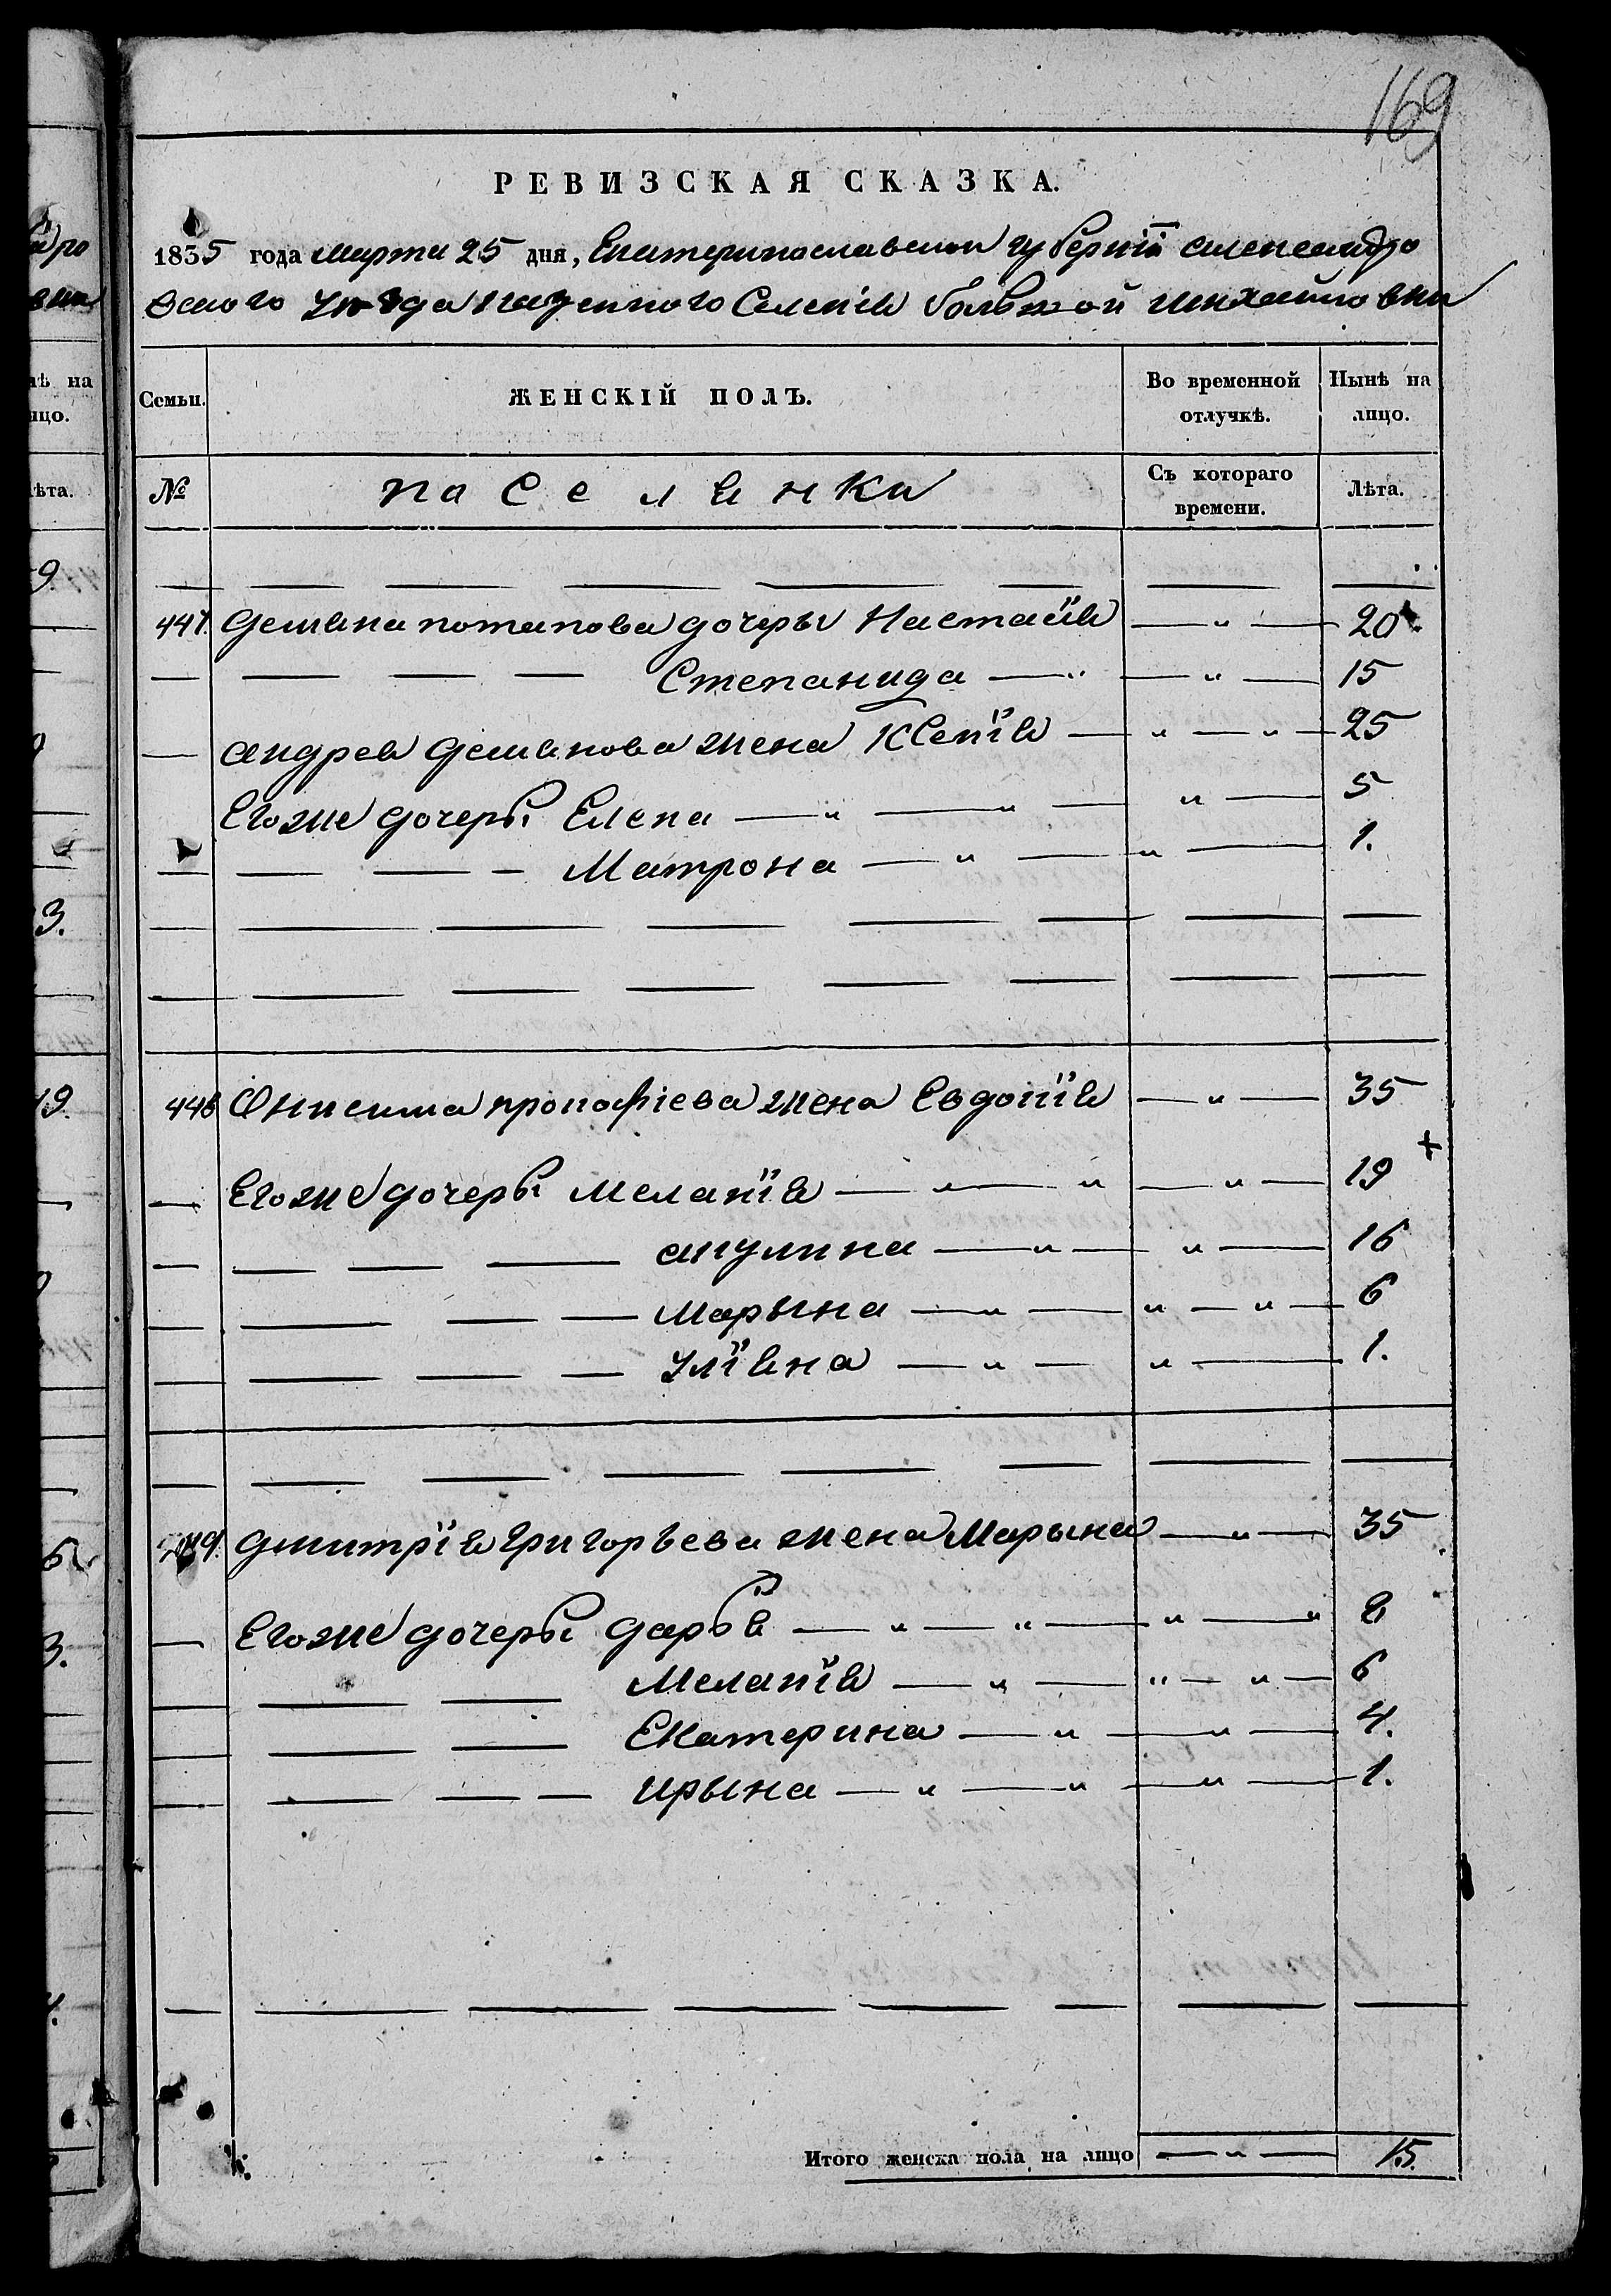 169
РЕВИЗСКАЯ СКАЗКА.
1835 года марта 25 дня, Екатеринославской губернїи александро
вского уезда казенного Селенїя большой михайловки
Семьи. ЖЕНСКІЙ ПОЛЪ. Во временной отлучкѣ. Нынѣ на лицо.
№ паселянки Съ котораго времени. Лѣта.
447. Демяна потапова дочеры Настасїя — " — 20
Степанида — " — " — 15
андрея Демянова жена Ксенїя — " — " — 25
Егоже дочеры Елена — " — " — " — 5
Матрона — " — " — 1.
448 Онисима прокофіева жена Евдокїя — " — 35
Егоже дочеры Меланїя — " — " — " — 19 +
акулина — " — " — 16
Марына — " — " — " — 6
Улїяна — " — " — 1.
449. Дмитрїя Григорьева жена Марына — " — 35
Егоже дочеры Дарья — " — " — " — " 8
Меланїя — " — " — " — 6
Екатерина — " — " — 4.
Ирына — " — " — " — 1.
Итого женска пола на лицо — " — 15.